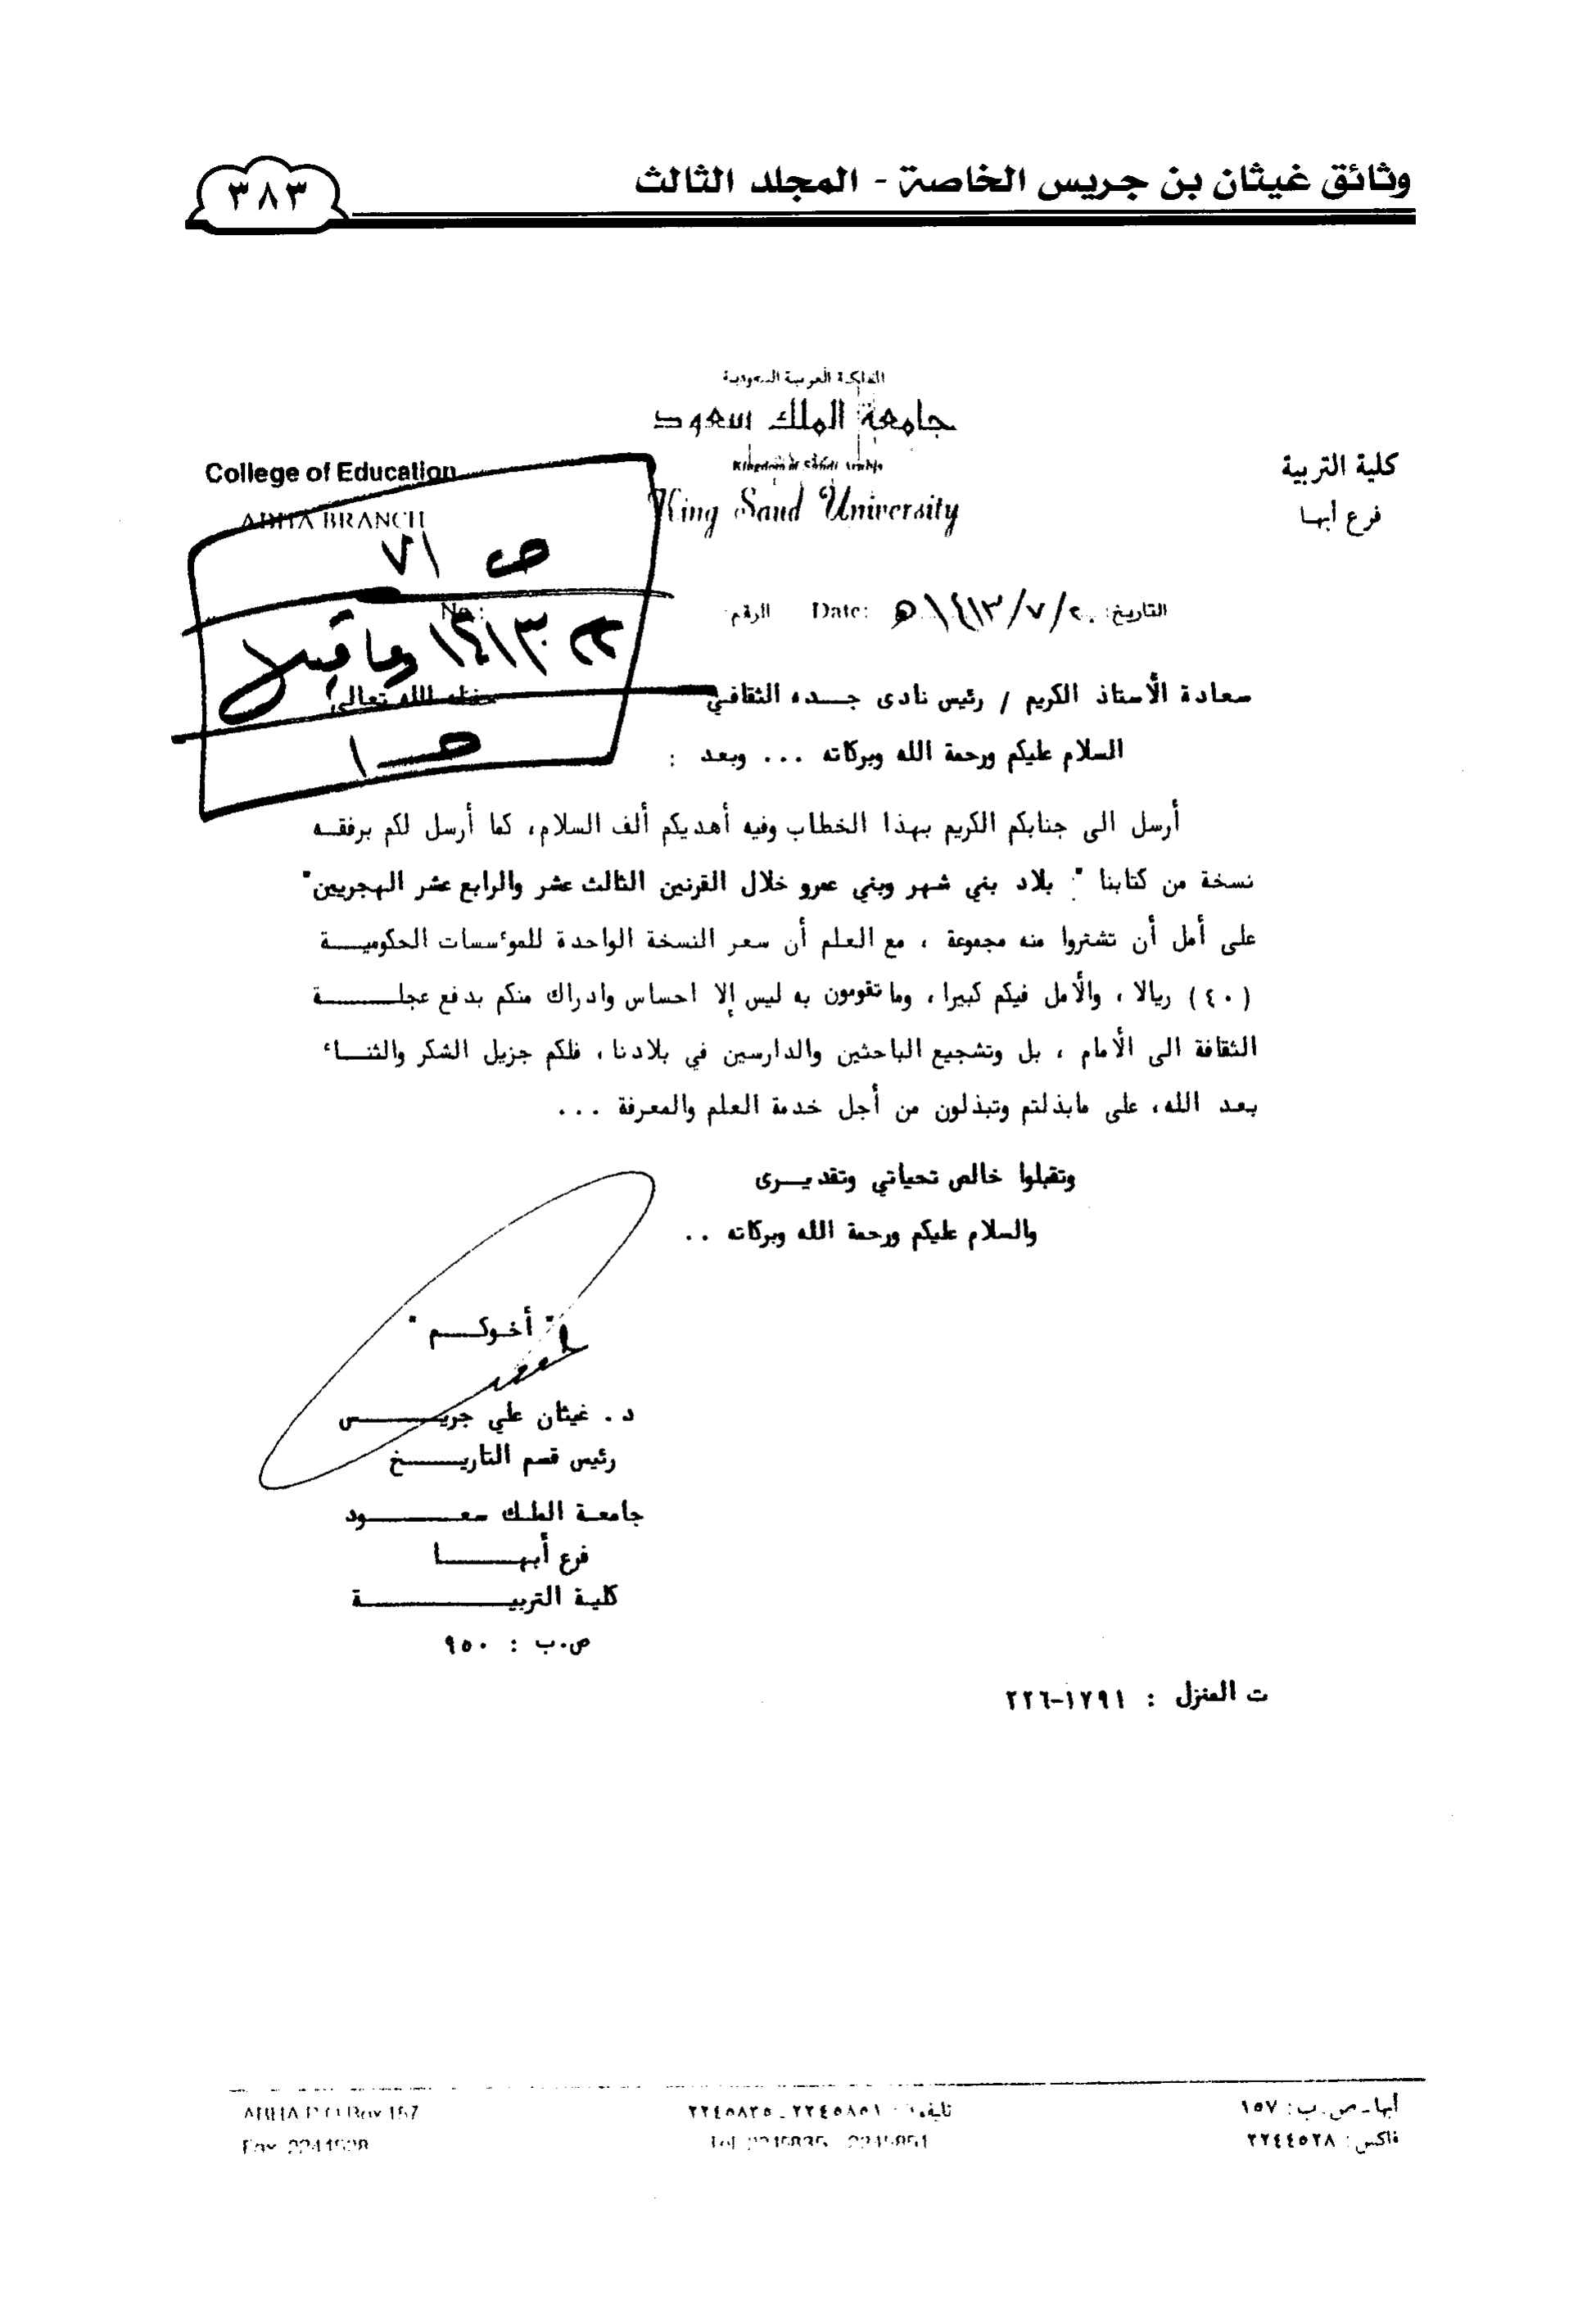 وثائق غيثان بن جريس الخاصة - المجلد الثالث
٣٨٣
المملكة العربية السعودية
جامعة الملك سعود
Kingdom of Saudi Arabia
King Saud University
كلية التربية
فرع أبها
College of Education
ABHA BRANCH
ص ٧١
١٤١٣ وما قبلا
ص ١
التاريخ: ٢٠/٧/١٤١٣هـ Date: الرقم No:
سعادة الأستاذ الكريم / رئيس نادى جـــده الثقافي حفظه الله تعالى
السلام عليكم ورحمة الله وبركاته ... وبعد :
أرسل الى جنابكم الكريم بهذا الخطاب وفيه أهديكم ألف السلام، كما أرسل لكم برفقـــه
نسخة من كتابنا " بلاد بني شهر وبني عمرو خلال القرنين الثالث عشر والرابع عشر الهجريين"
على أمل أن تشتروا منه مجموعة ، مع العلم أن سعر النسخة الواحدة للموٴسسات الحكوميـــة
(٤٠) ريالا ، والأمل فيكم كبيرا ، وما تقومون به ليس إلا احساس وادراك منكم بدفع عجلـــة
الثقافة الى الأمام ، بل وتشجيع الباحثين والدارسين في بلادنا ، فلكم جزيل الشكر والثنـــاء
بعد الله، على مابذلتم وتبذلون من أجل خدمة العلم والمعرفة ...
وتقبلوا خالص تحياتي وتقديـــرى
والسلام عليكم ورحمة الله وبركاته ..
" أخوكـــم "
د . غيثان علي جريـــس
رئيس قسم التاريـــخ
جامعة الملك سعـــود
فرع أبهـــا
كلية التربيـــة
ص.ب : ٩٥٠
ت المنزل : ٢٢٦-١٧٩١
أبها ـ ص. ب: ١٥٧
تليفون: ٢٢٤٥٨٥١ ـ ٢٢٤٥٨٣٥
ABHA P.O.Box 157
فاكس: ٢٢٤٤٥٢٨
Tel. 2245835 - 2245851
Fax 2244528